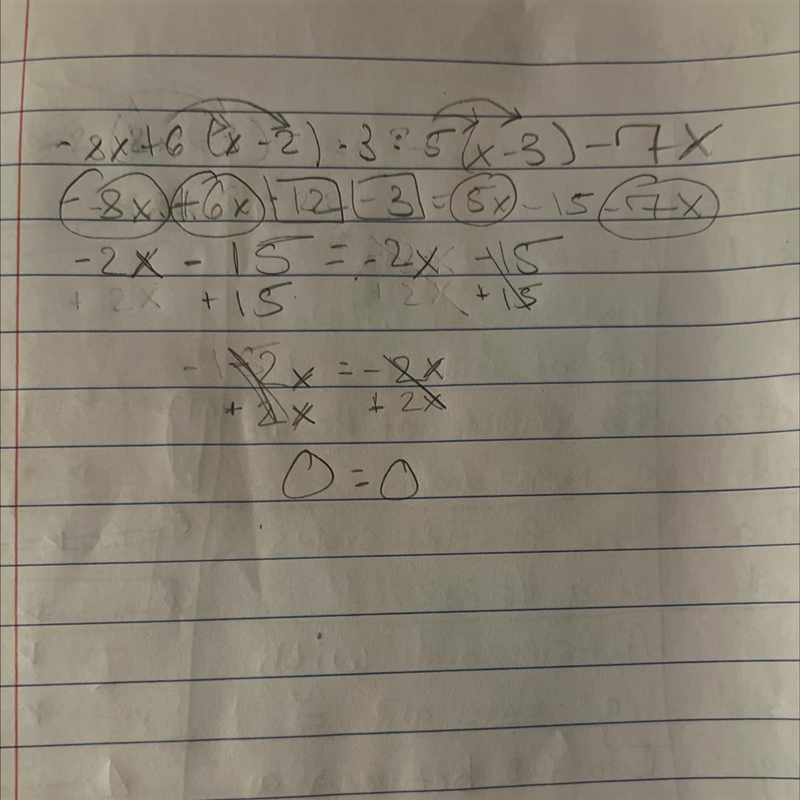 -8x+6(x-2)-3=5(x-3)-7x
-8x+6x-12-3=5x-15-7x
-2x-15=-2x-15
+2x +15 +2x +15
-2x=-2x
+2x +2x
0=0